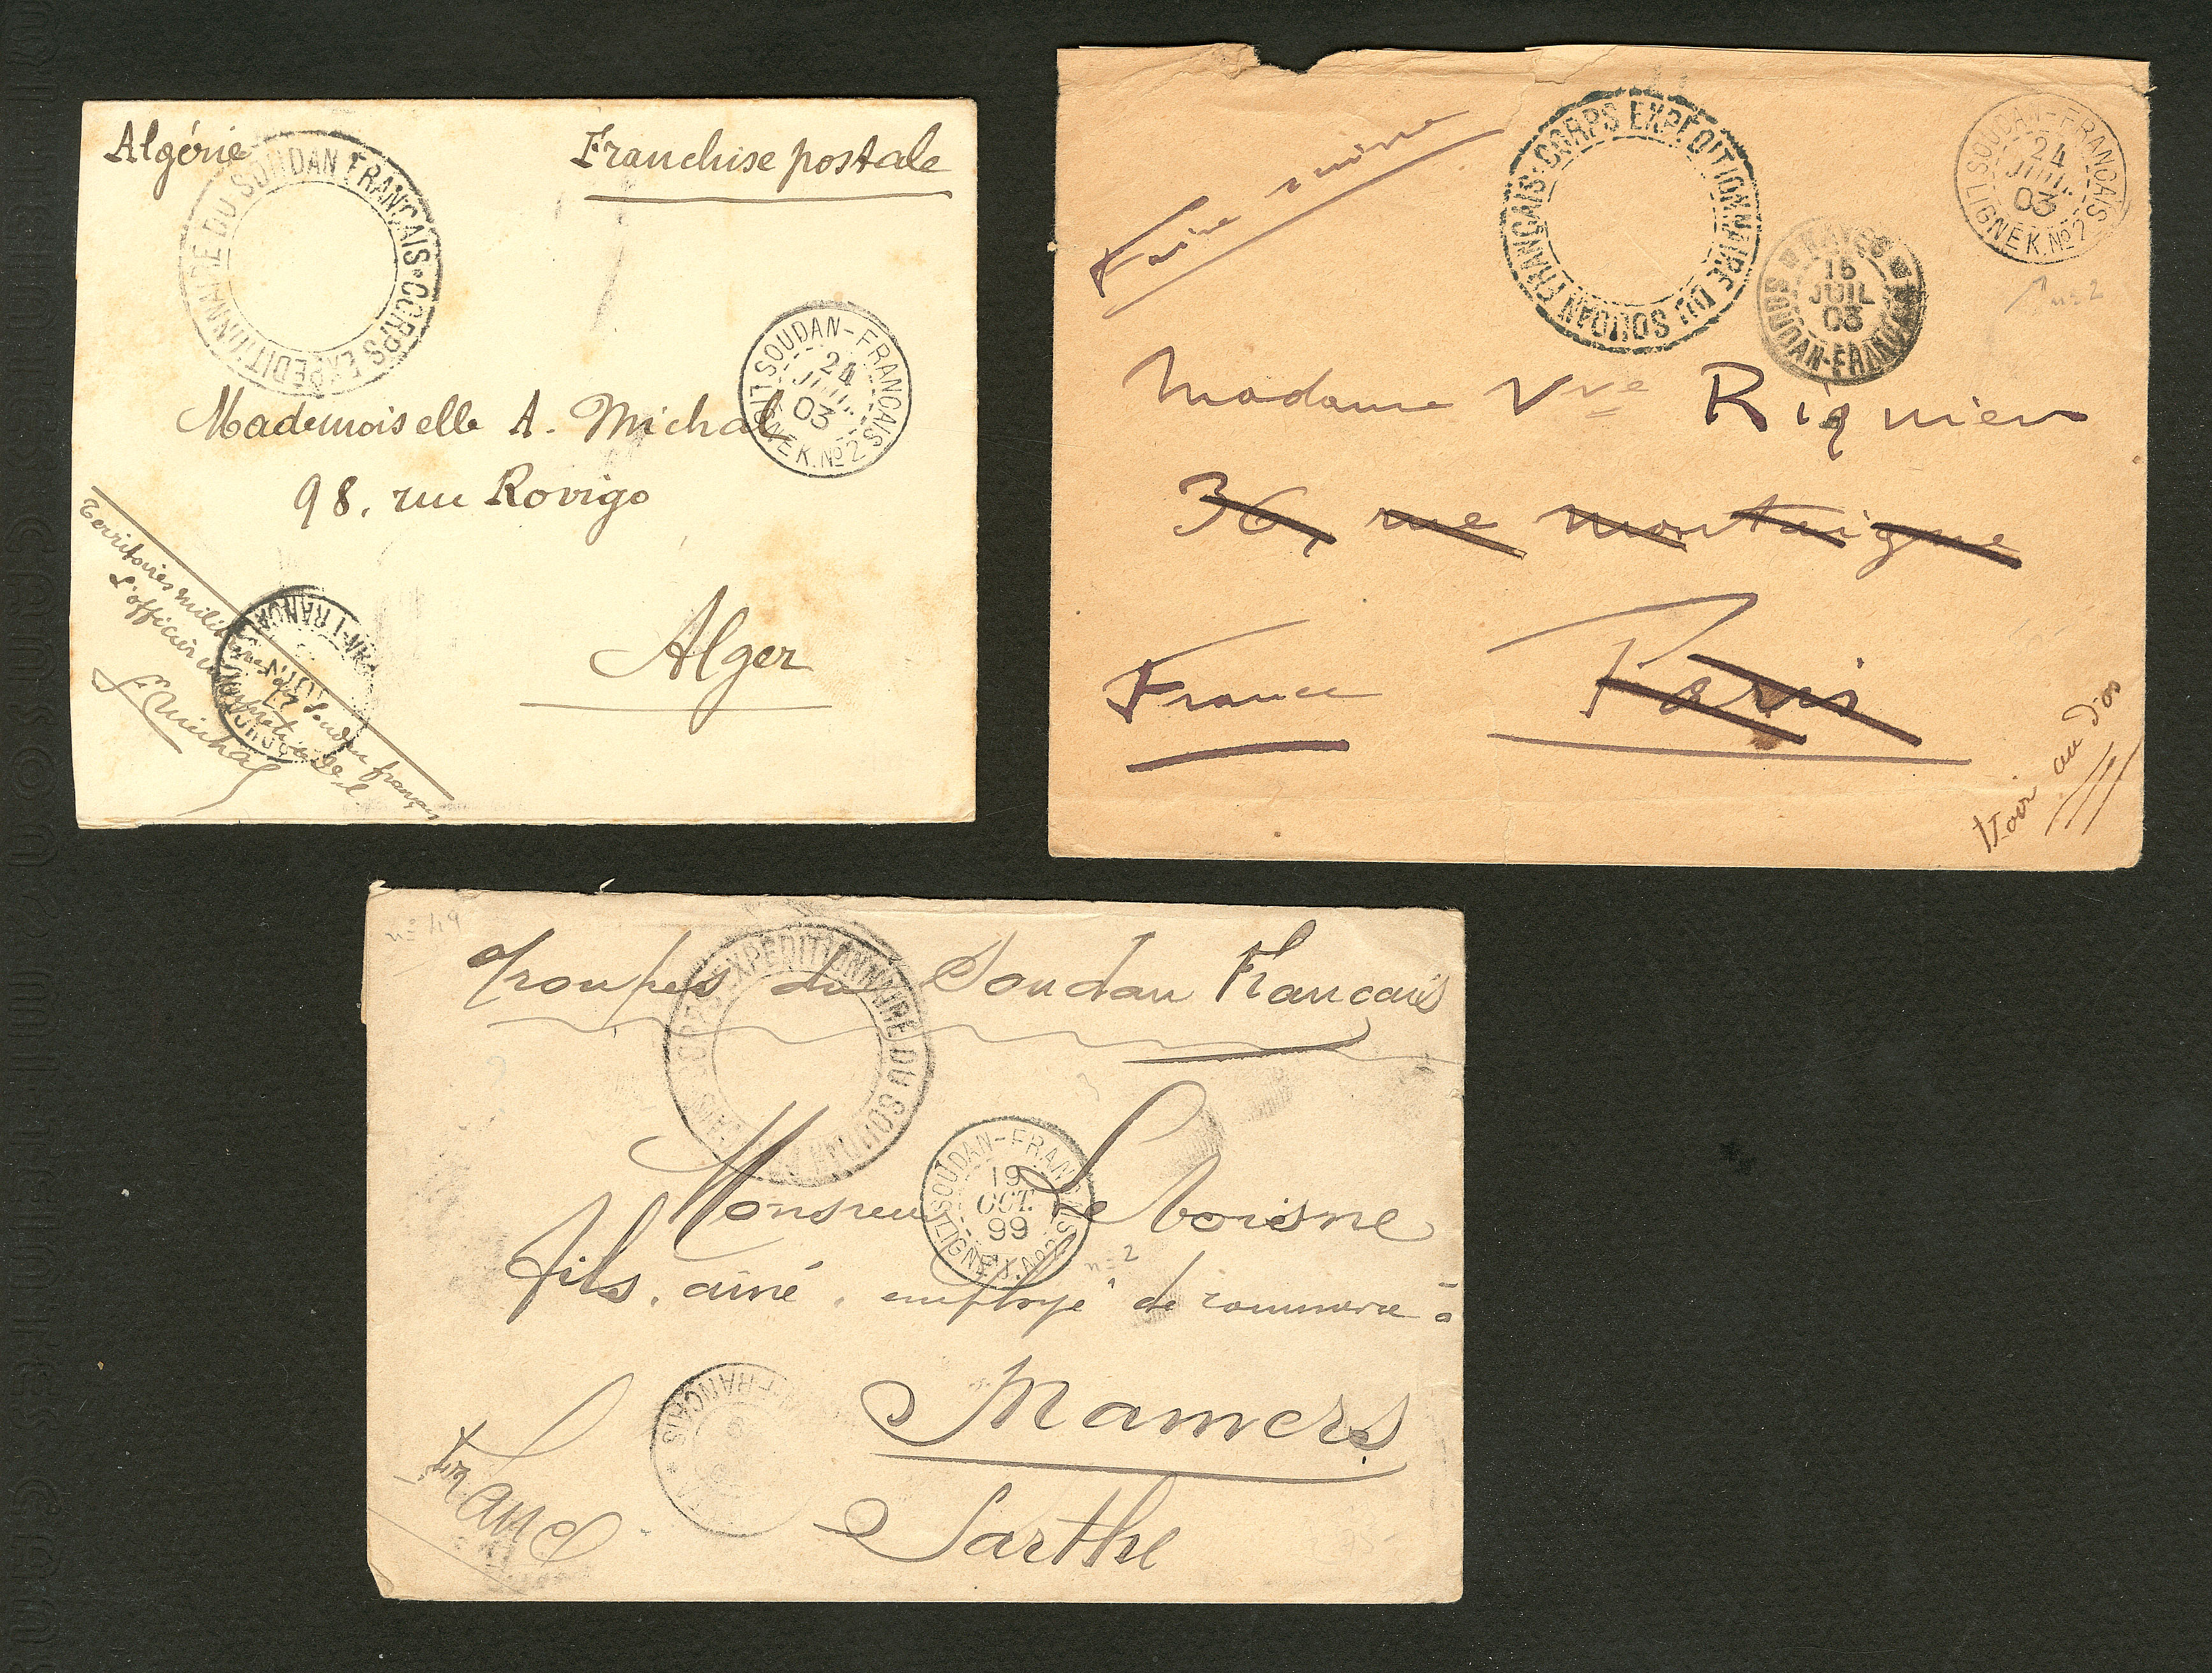 Algérie
Franchise postale
CORPS EXPEDITIONNAIRE DU SOUDAN FRANÇAIS
SOUDAN-FRANCAIS
24
JUIL.
03
LIGNE K. Nº 2
Mademoiselle A. Michal
98, rue Rovigo
Alger
Territoires militaires du Soudan français
L'officier
Michal
CORPS EXPEDITIONNAIRE DU SOUDAN FRANÇAIS
SOUDAN-FRANCAIS
24
JUIL.
03
LIGNE K. Nº 2
nº 2
KAYES
16
JUIL
03
SOUDAN-FRANCAIS
Madame Vve Riquier
36, rue Montaigne
France
Paris
Voir au dos
nº 49
Troupes du Soudan Français
CORPS EXPEDITIONNAIRE DU SOUDAN FRANÇAIS
SOUDAN-FRANCAIS
19
OCT.
99
LIGNE J. Nº 2
nº 2
Monsieur Leboisne
fils, ainé, employé de commerce à
Mamers
Sarthe
France